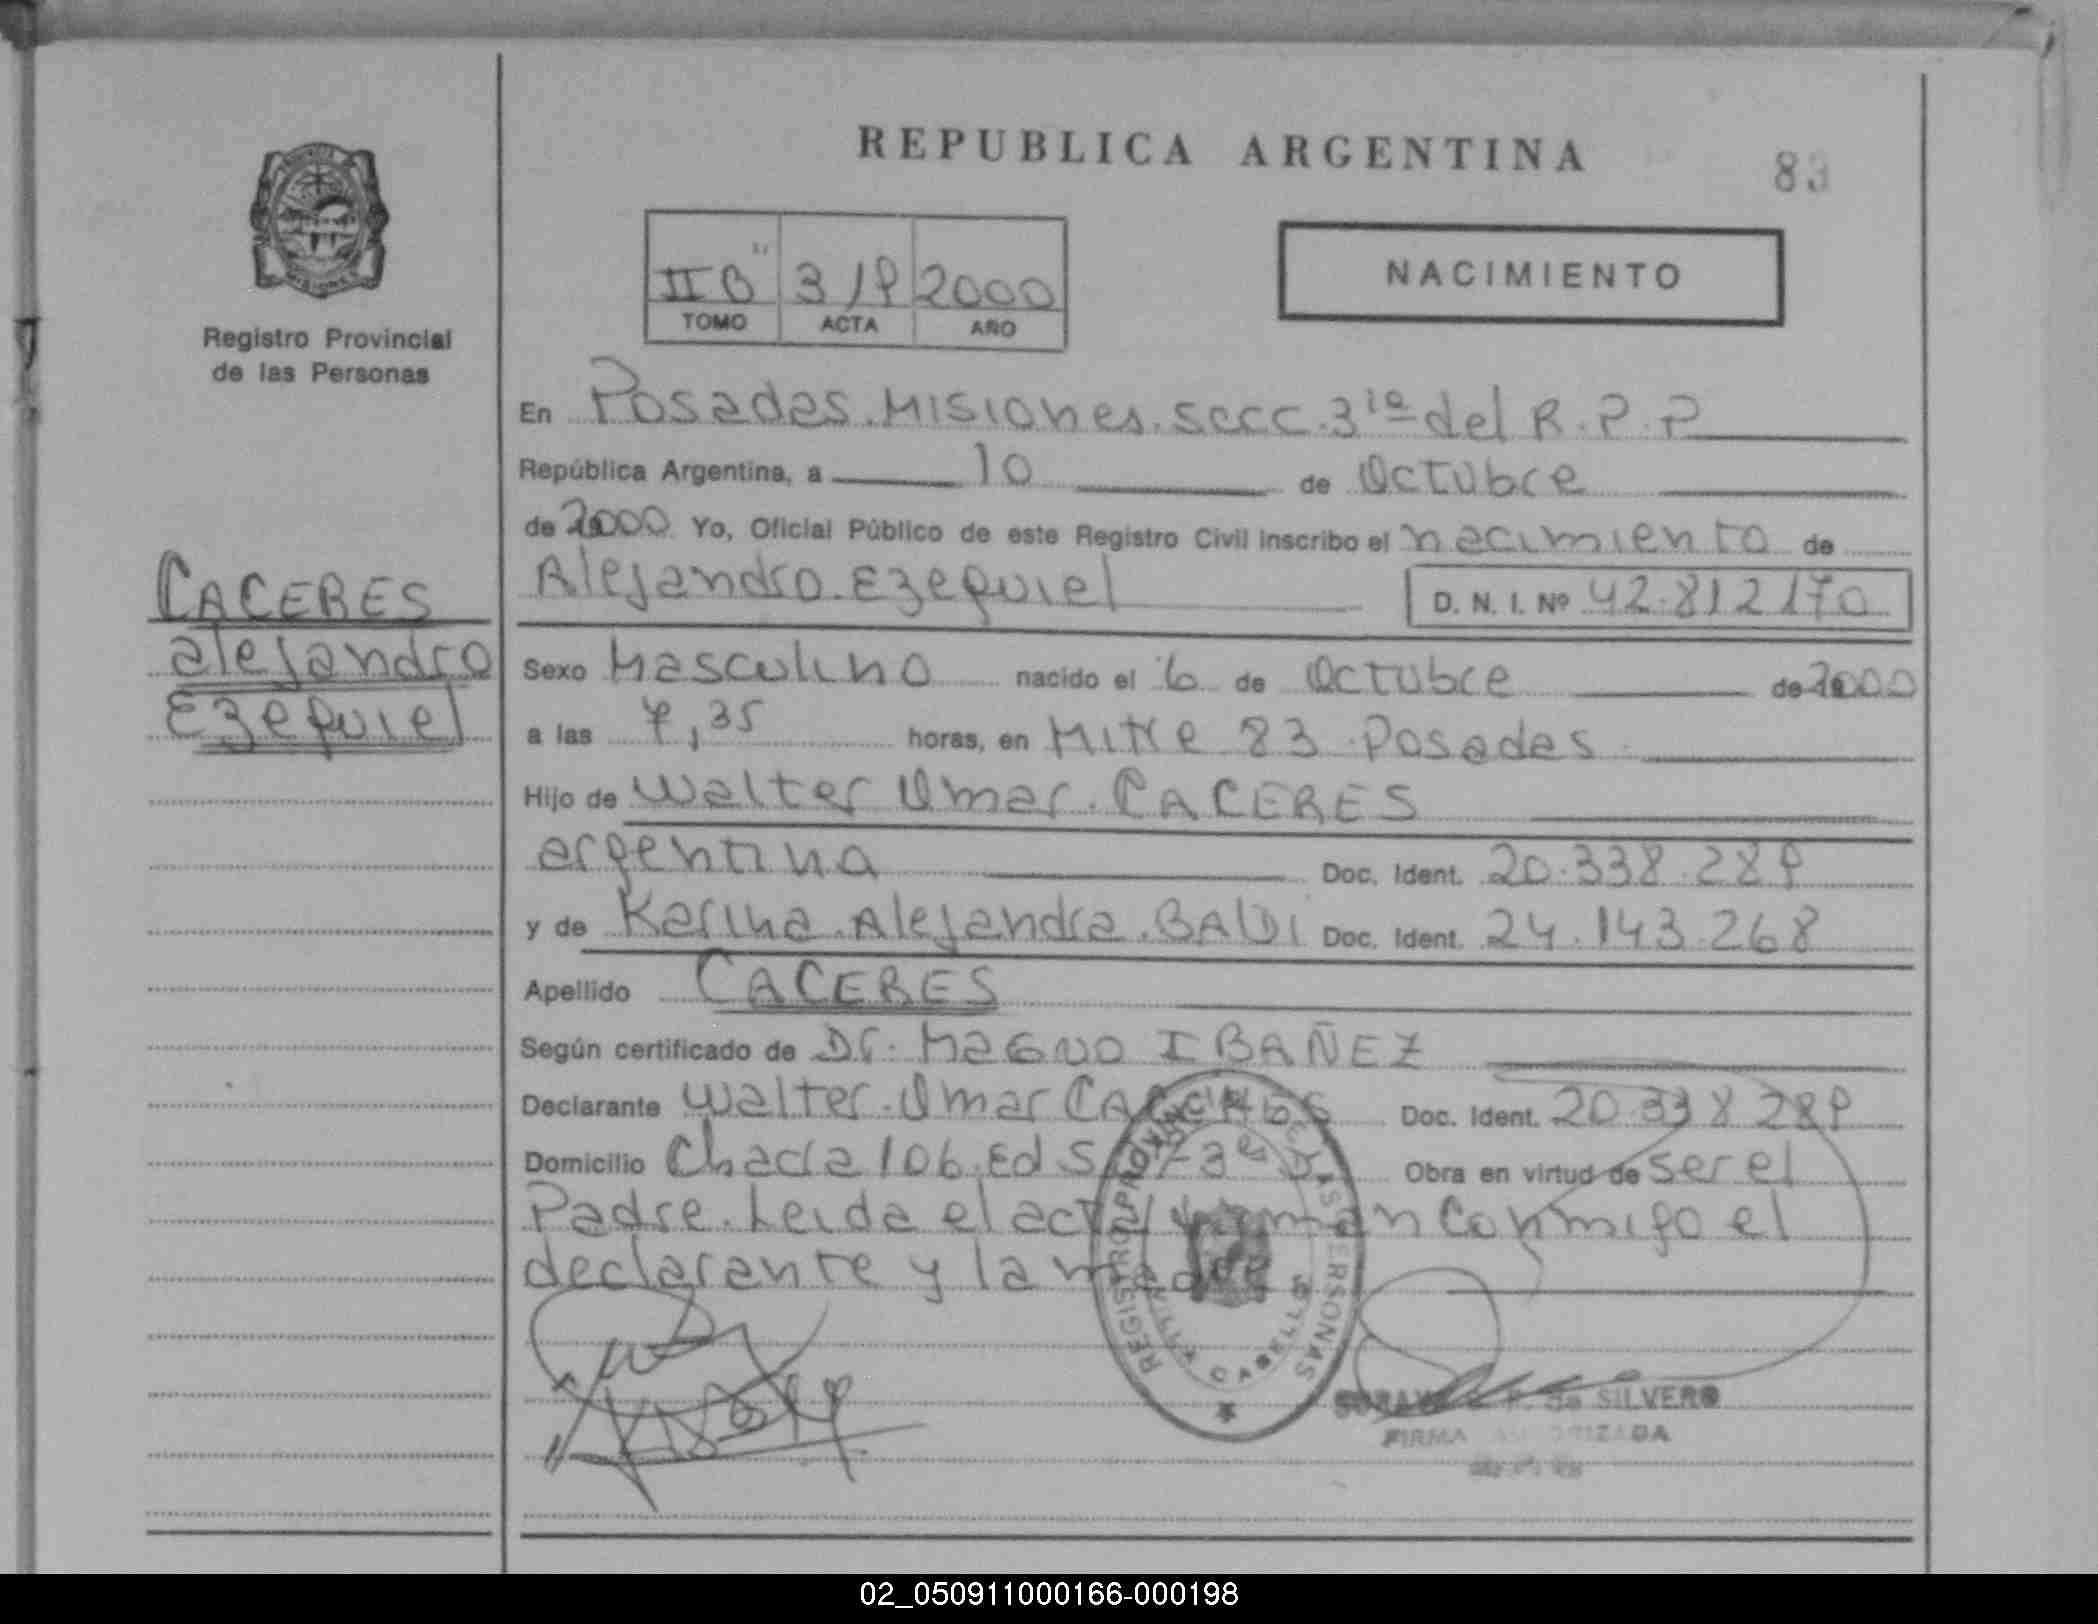 REPUBLICA ARGENTINA
83
Registro Provincial
de las Personas
II B" 319 2000
TOMO ACTA AÑO
NACIMIENTO
En Posadas. Misiones. Secc. 3ia del R.P.P
República Argentina, a 10 de Octubre
de 2000 Yo, Oficial Público de este Registro Civil inscribo el nacimiento de
Alejandro Ezequiel D. N. I. Nº 42.812170
CACERES
alejandro
Ezequiel
Sexo Masculino nacido el 6 de Octubre de 2000
a las 7,35 horas, en Mitre 83 Posadas
Hijo de Walter Omar. CACERES
argentina Doc. Ident. 20.338.289
y de Karina Alejandra. BALDI Doc. Ident. 24.143.268
Apellido CACERES
Según certificado de Dr. Magno IBAÑEZ
Declarante Walter Omar Doc. Ident. 20.338 289
Domicilio Chacra 106. Ed Obra en virtud de ser el
Padre. Leida el acta firman conmigo el
declarante y la madre
REGISTRO PROVINCIAL DE LAS PERSONAS
VILLA CABELLO
de SILVERO
FIRMA AUTORIZADA
02_050911000166-000198